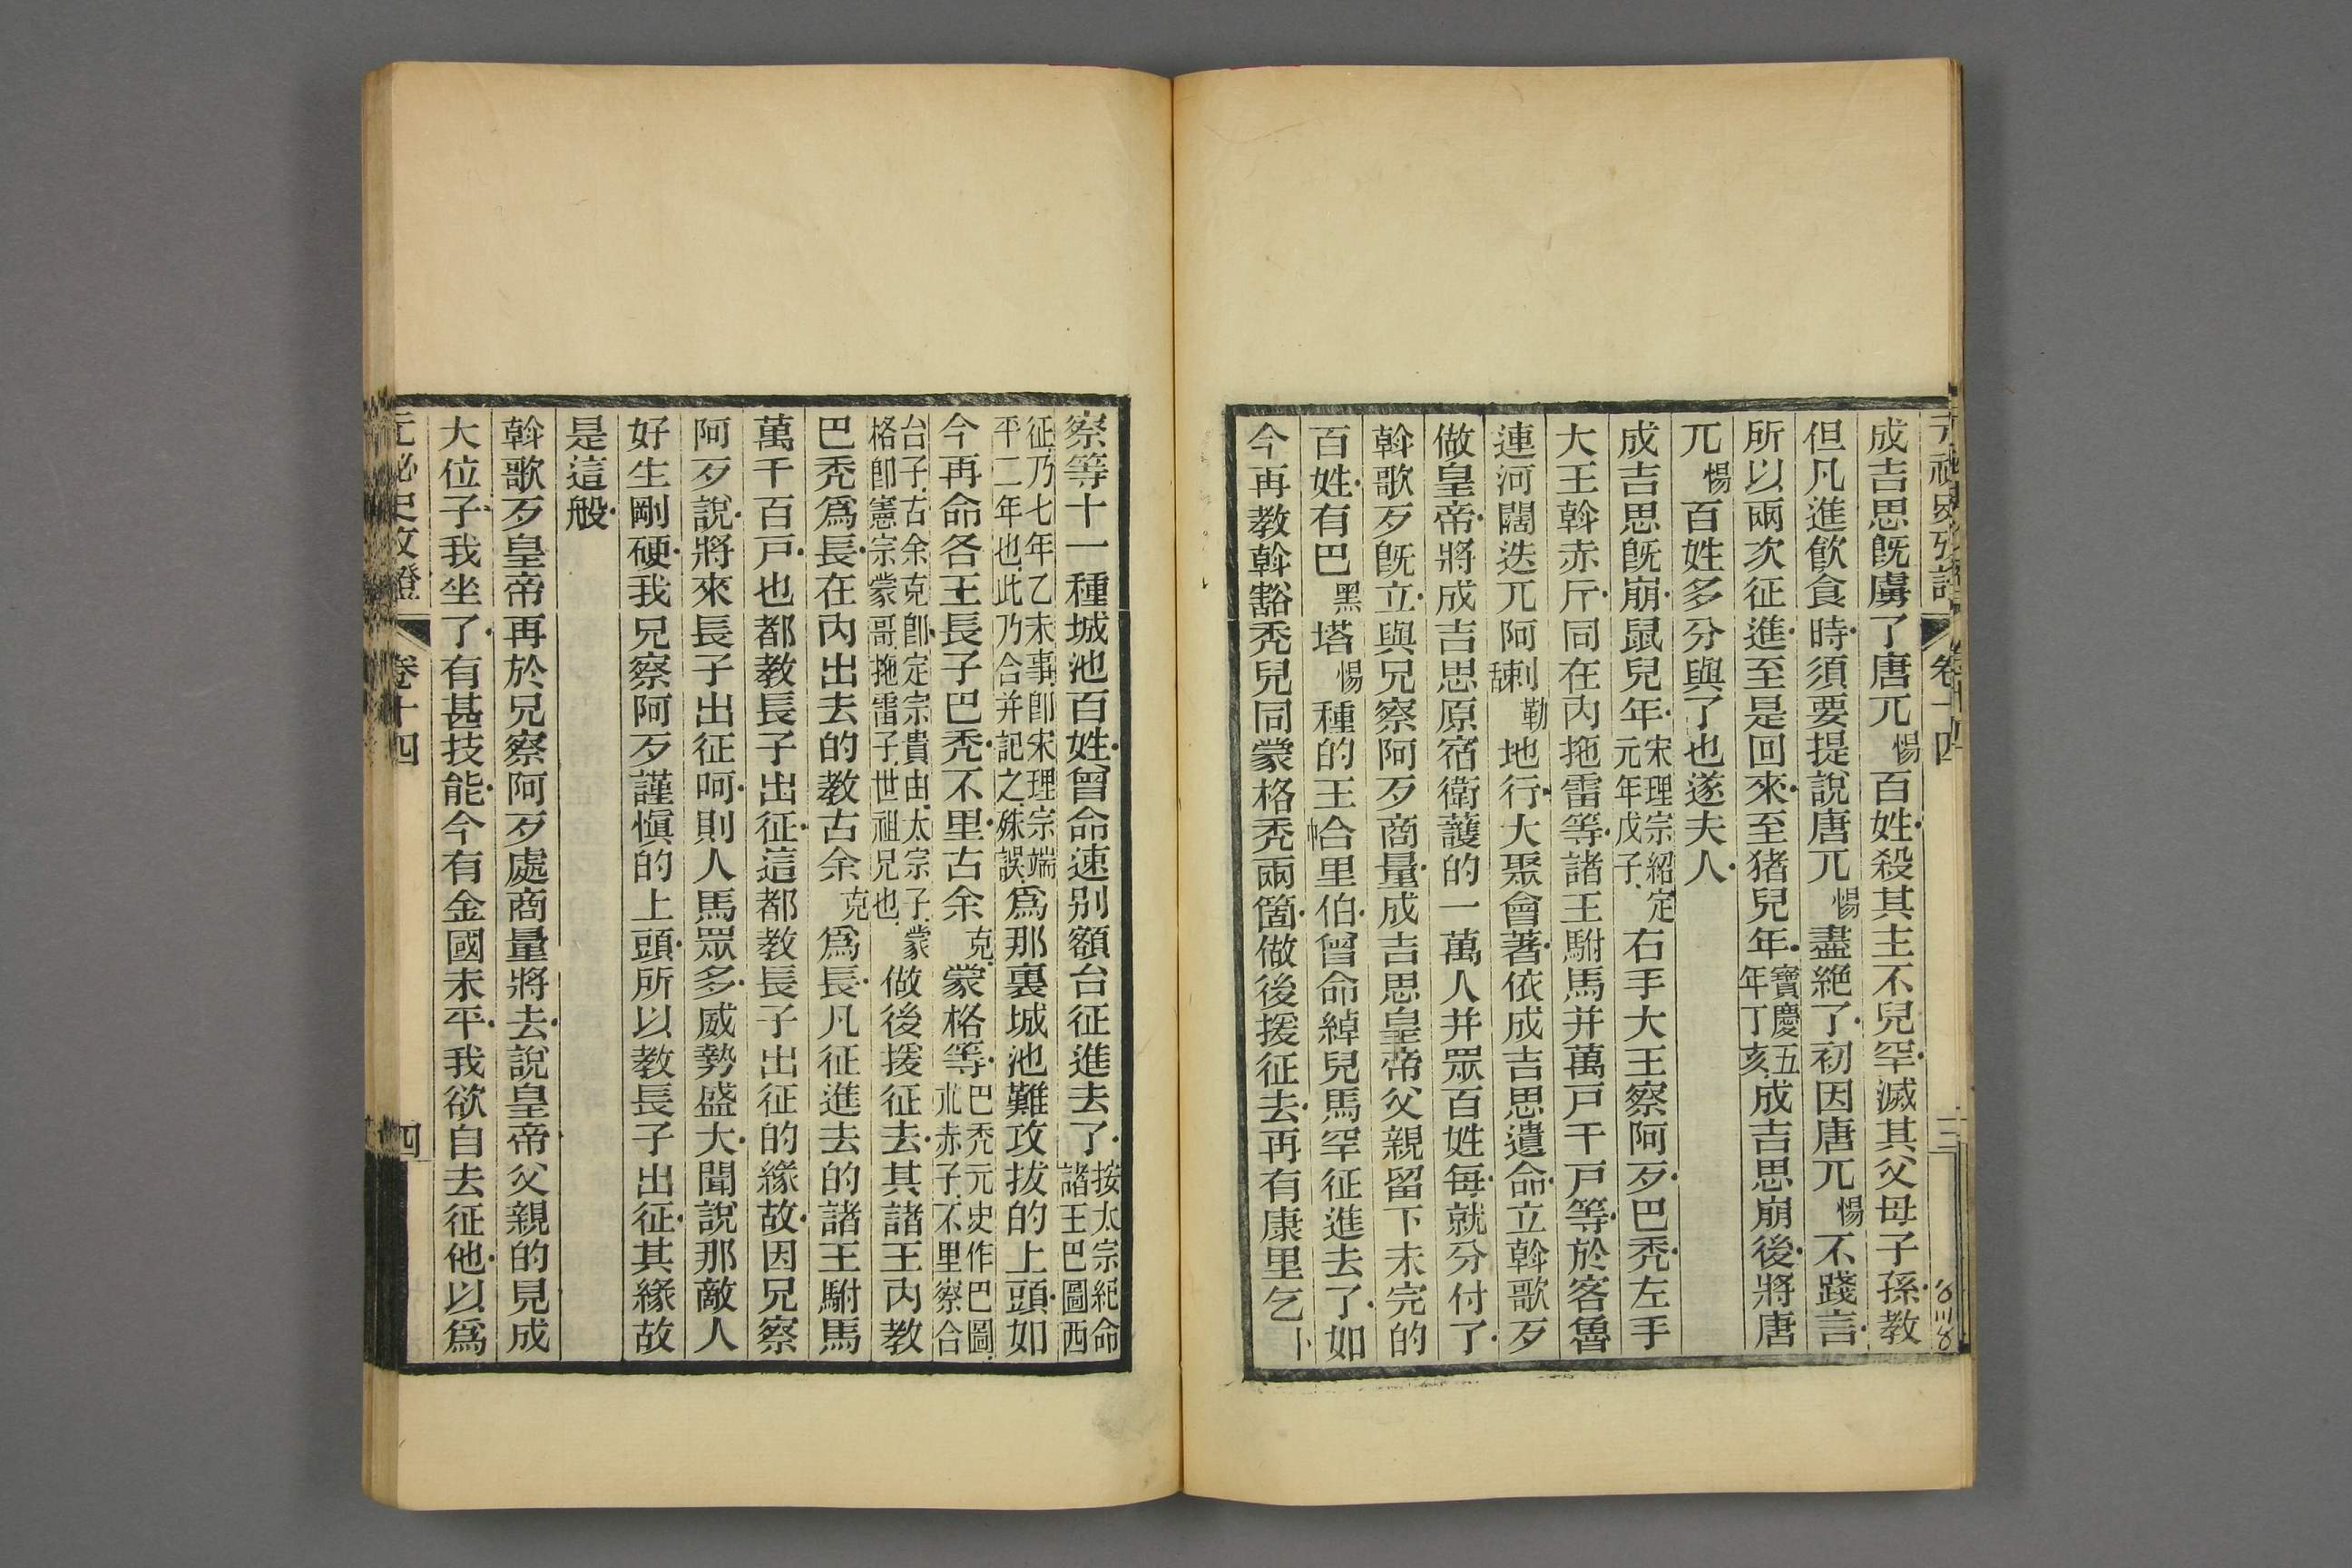 元祕史攷證 卷十四 三
成吉思旣虜了唐兀惕百姓殺其主不兒罕滅其父母子孫教
但凡進飮食時須要提說唐兀惕盡絶了初因唐兀惕不踐言
所以兩次征進至是回來至猪兒年寶慶五年丁亥成吉思崩後將唐
兀惕百姓多分與了也遂夫人
成吉思旣崩鼠兒年宋理宗紹定元年戊子右手大王察阿歹巴禿左手
大王斡赤斤同在內拖雷等諸王駙馬并萬戸千戸等於客魯
連河闊迭兀阿剌勒地行大聚會著依成吉思遺命立斡歌歹
做皇帝將成吉思原宿衛護的一萬人并眾百姓每就分付了
斡歌歹旣立與兄察阿歹商量成吉思皇帝父親留下未完的
百姓有巴黑塔惕種的王哈里伯曾命綽兒馬罕征進去了如
今再教斡豁禿兒同蒙格禿兩箇做後援征去再有康里乞卜
察等十一種城池百姓曾命速别額台征進去了按太宗紀命諸王巴圖西
征乃七年乙未事卽宋理宗端平二年也此乃合并記之殊誤爲那裏城池難攻拔的上頭如
今再命各王長子巴禿不里古余克蒙格等巴禿元史作巴圖朮赤子不里察合
台子古余克卽定宗貴由太宗子蒙格卽憲宗蒙哥拖雷子世祖兄也做後援征去其諸王內教
巴禿爲長在內出去的教古余克爲長凡征進去的諸王駙馬
萬千百戸也都教長子出征這都教長子出征的緣故因兄察
阿歹說將來長子出征呵則人馬眾多威勢盛大聞說那敵人
好生剛硬我兄察阿歹謹愼的上頭所以教長子出征其緣故
是這般
斡歌歹皇帝再於兄察阿歹處商量將去說皇帝父親的見成
大位子我坐了有甚技能今有金國未平我欲自去征他以爲
元祕史攷證 卷十四 四